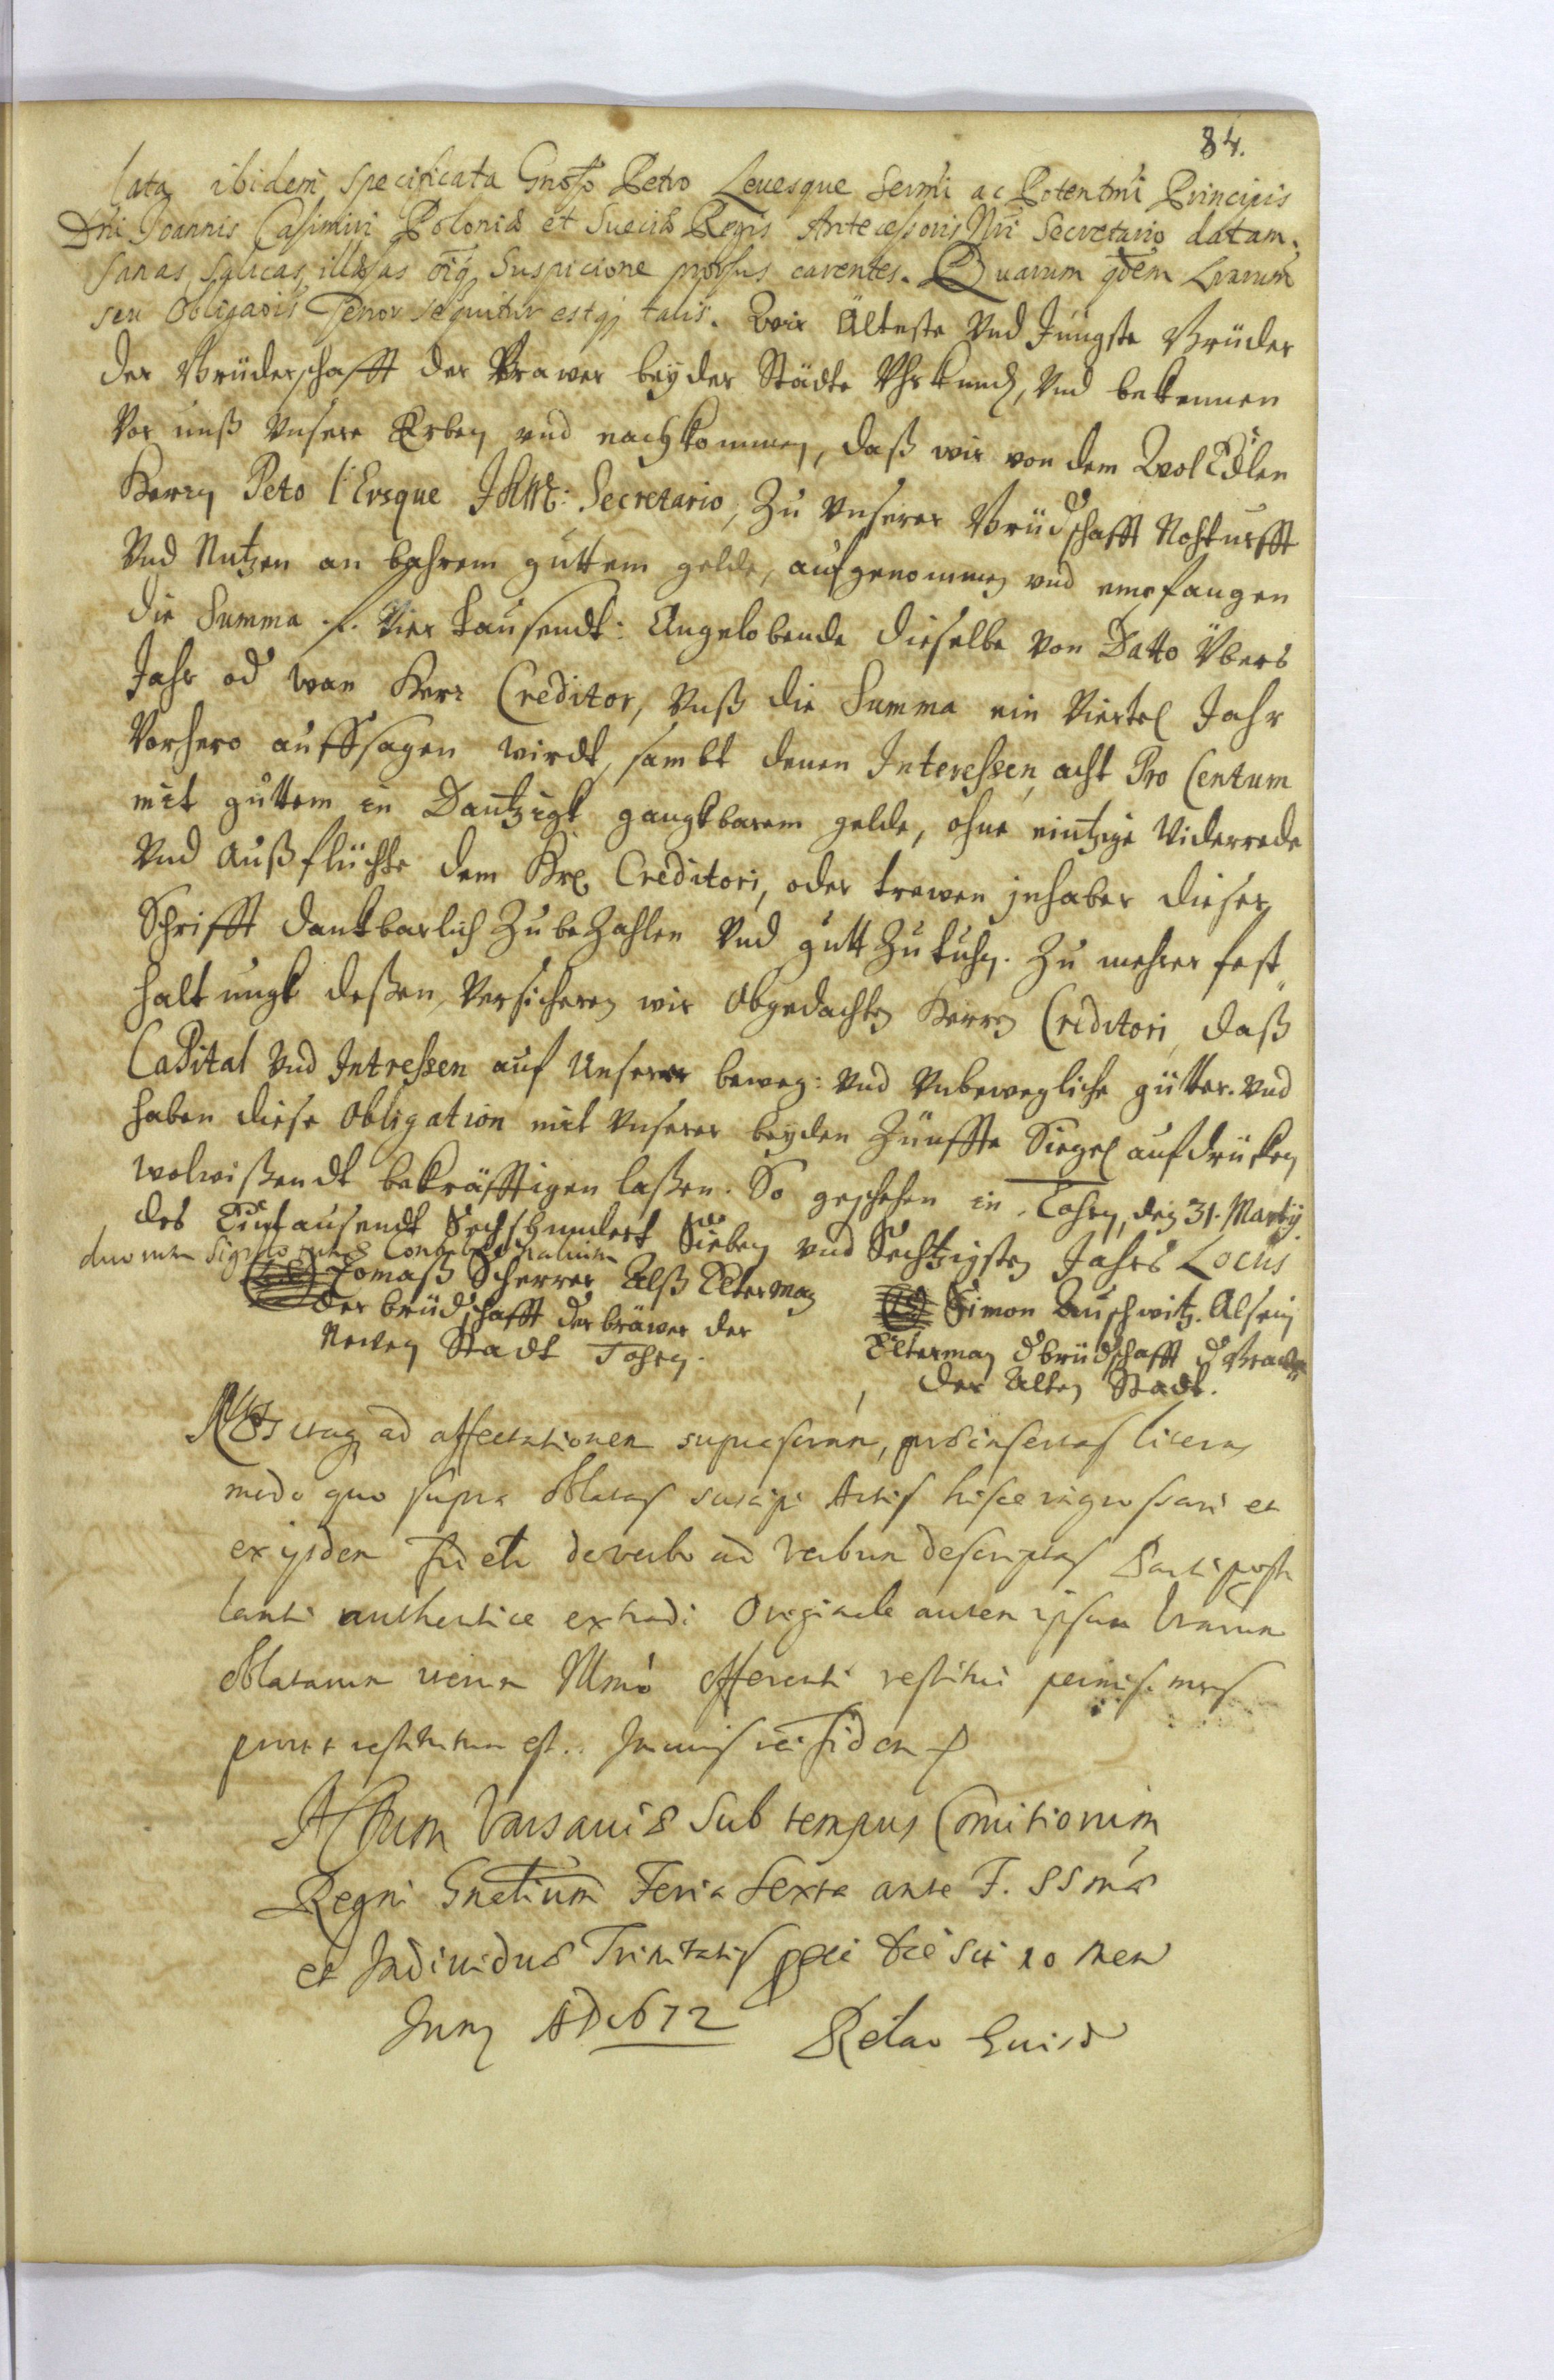 84.
lata ibidem specificata Gnoso Petro Levesque Sermi ac Potentmi Principis
Dni Joannis Casimiri Poloniæ et Sueciæ Regis Antecessoris Nri Secretario datam.
sanas, salvas, illæsas oiq Suspicione prorsus carentes. Quarum qdem Lrarum
seu Obligaois Tenor sequitur estq talis. Wir Älteste Vnd Jüngste Brüder
der Brüderschafft der Brawer beyder Städte Uhrkund, Vnd bekennen
Vor unß Vnsere Erben vnd nachkommen, daß wir von dem WolEdlen
Herrn Peto l'Evsque JKMt: Secretario, Zu Vnserer Brüdschafft Nohturfft
Vnd Nutzen an bahrem guttem gelde, aufgenommen vnd empfangen
die Summa f. Vier tausendt: Angelobende dieselbe Von Datto Übers
Jahr od wan Herr Creditor, Vnß die Summa ein Viertel Jahr
Vorhero auffsagen wirdt, sambt denen Interessen, acht Pro Centum
mit guttem in Dantzigk gangkbarem gelde, ohne eintzige Widerrede
Vnd Außflüchte dem Hrn Creditori, oder trewen jnhaber dieser
Schrifft dankbarlich ZubeZahlen Vnd gutt Zu tuhn. Zu mehrer fest
haltungk deßen, Versicheren wir Obgedachten Herren Creditori, daß
Capital Vnd Intressen auf Unserer beweg: Vnd Vnbewegliche gütter. Vnd
haben diese Obligation mit Vnserer beyden Zünffte Siegel aufdrüken
wolwißendt bekräfftigen laßen. So geschehen in Tohrn, den 31. Martij
des Eintausendt Sechshundert Sieben vnd Sechtzigsten Jahrs Locus
duorum Sigillorum
Tomaß Scherrer Alß Elterman
der brüdschafft der bräwer der
Newen Stadt Tohrn.
Simon Buschwitz. Alß ein
Elterman d brüdschafft d Brawer
der Alten Stadt.
Nos itaq ad affectationem suprascriptam, præinsertas literas
modo quo supra oblatas suscipi Actis hisce ingrossari et
ex ijsdem de verbo ad verbum descriptas Parti postu
lanti authentice extradi Originale autem ipsum Lrarum
oblatarum offerenti restitui permisimus
prout restitutum est. In cuius rei fidem
Actum Varsaviæ Sub tempus Comitiorum
Regni Gnalium Feria Sexta ante F. SSmæ
et Individuæ Trinitatis die 10 Mens
Junij AD 1672